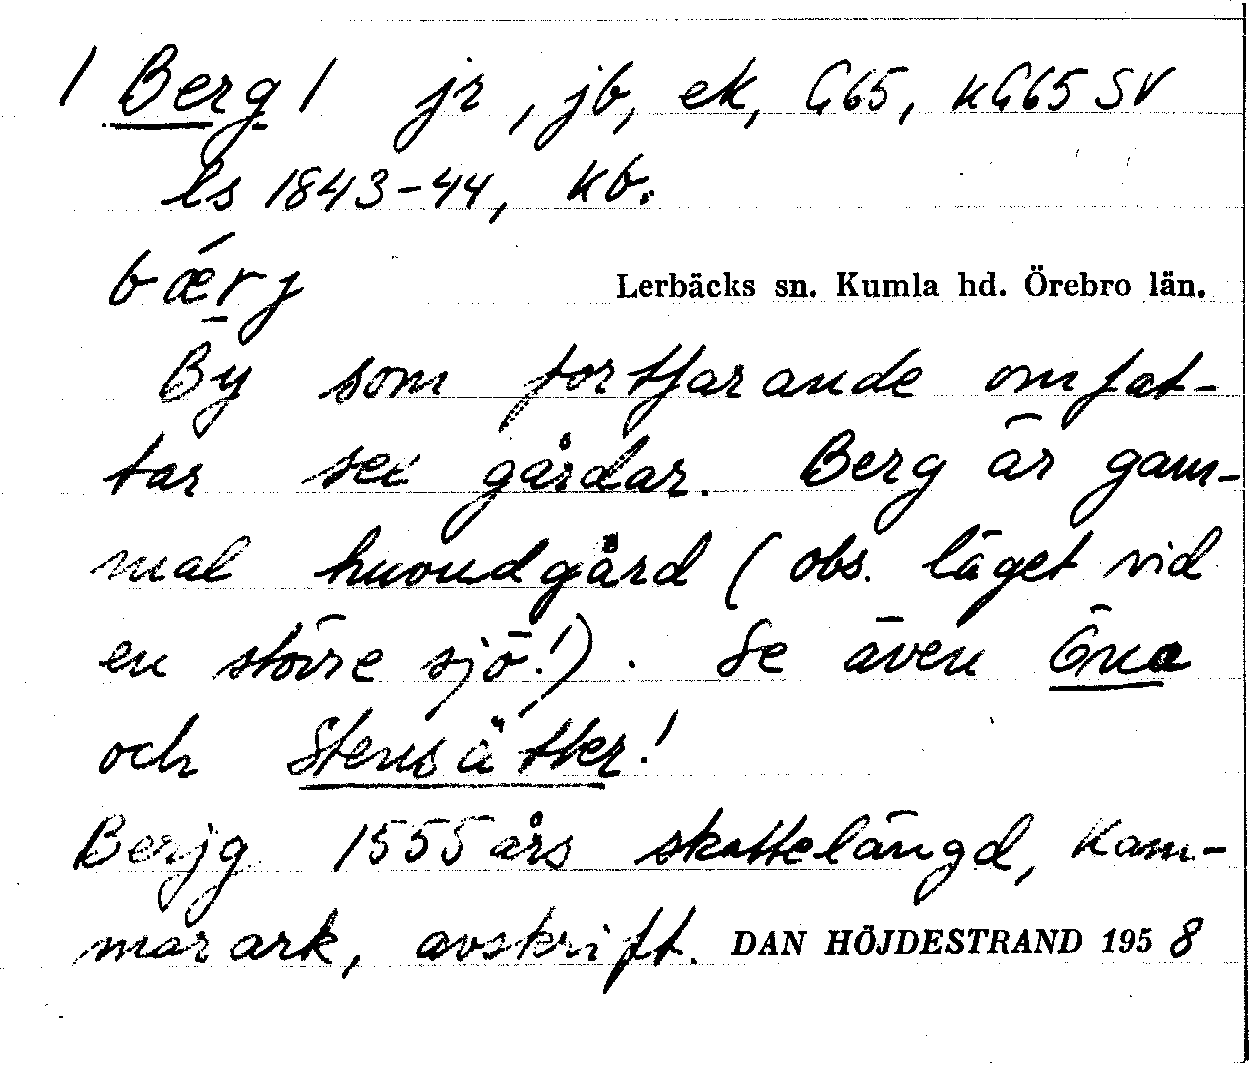 / Berg / jr, jb, ek, G65, kG65 SV
ls 1843-44, kb.
bǽrj
Lerbäcks sn. Kumla hd. Örebro län.
By som fortfarande omfat-
tar sex gårdar. Berg är gam-
mal huvudgård (obs. läget vid
en större sjö!). Se även Öna
och Stensätter!
Berjg 1555 års skattelängd, Kam-
marark, avskrift. DAN HÖJDESTRAND 1958